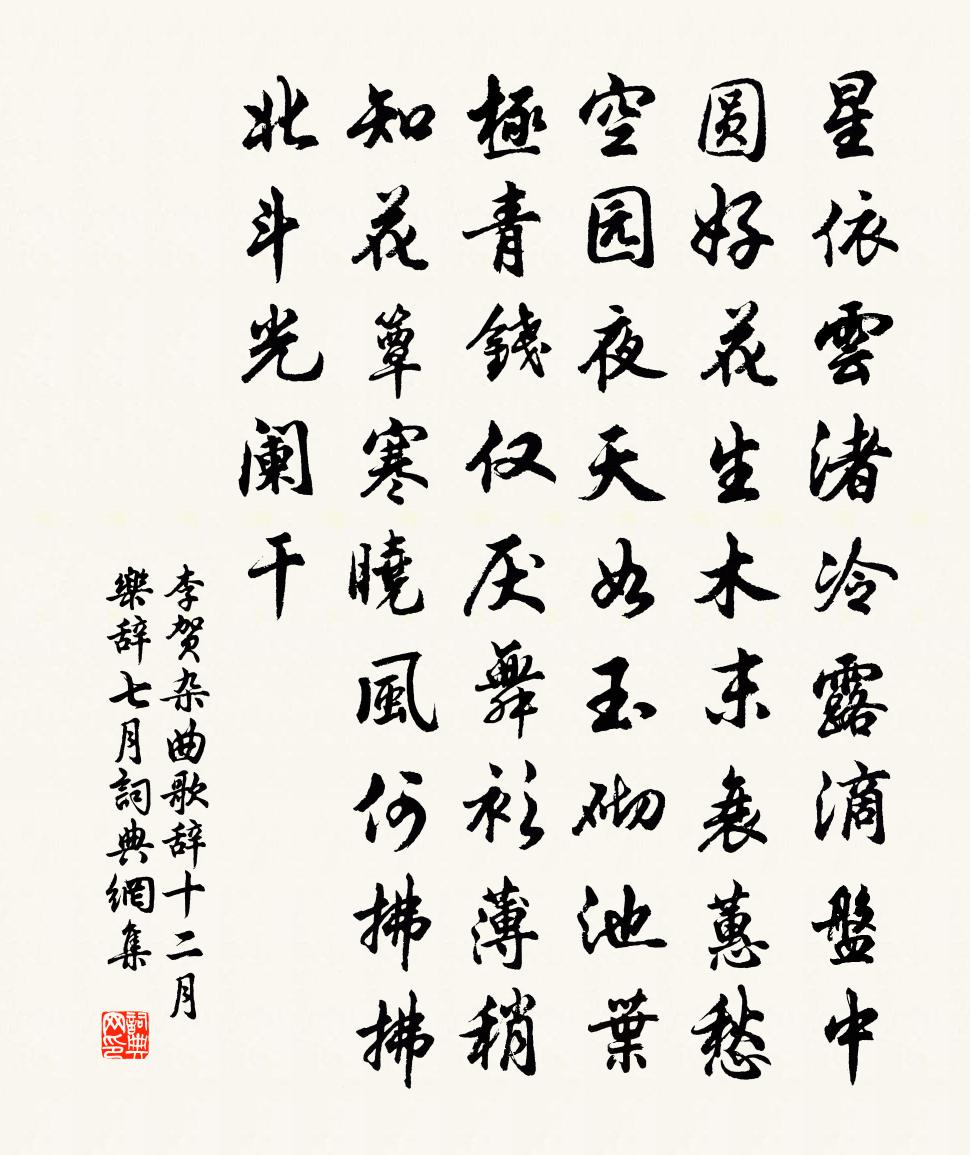 星依雲渚冷露滴盤中
圆好花生木末衰蕙愁
空园夜天如玉砌池葉
極青錢仅厌舞衫薄稍
知花簟寒曉風何拂拂
北斗光阑干
李贺杂曲歌辞十二月
樂辞七月詞典網集
詞典
网印